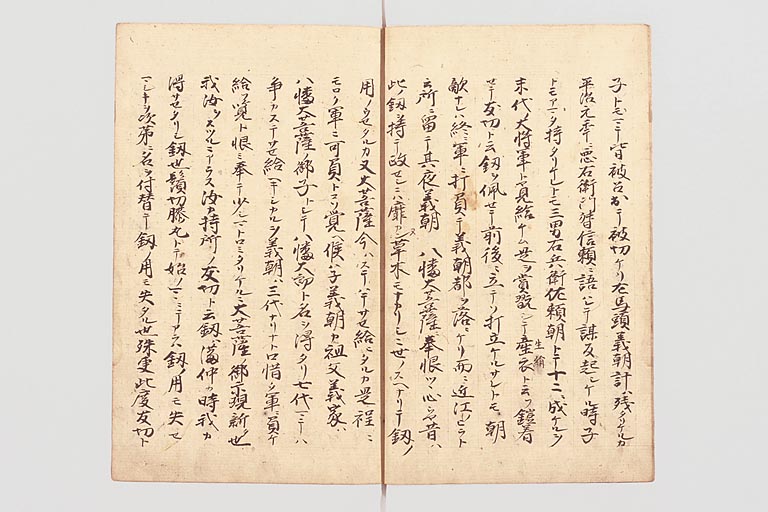 子トモニテ皆被召出テ被切ケリ左馬頭義朝計ハ残タリケルカ
平治元年ニ悪右衛門督信頼ニ語ハレテ謀反起シケル時子
トモアマタ持タリケレトモ三男右兵衛佐頼朝トテ十二ニ成ケルヲ
末代ノ大将軍ト見給ケム 賞翫シテ産衣ト云フ鎧着
生絹
セテ友切ト云釼ヲ佩セテ前後ニ立テソ打立ケルサレトモ 朝
敵ナレハ終ニ軍ニ打負テ義朝都ヲ落ニケリ而ニ近江
云所ニ留テ其夜義朝 八幡大菩薩ヲ奉恨ツヽ心 昔ハ
此ノ釼ヲ持テ 草木モナカリシニ世ノスヘ 釼ノ
用ノ失タルカ又大菩薩今ハステハテサセ給ヒタルカ是程ニ
モロク軍ニ可負トコソ覚ヘ候ハネ義朝カ祖父義家ハ
八幡大菩薩ノ御子トシテ八幡太郎ト名ヲ得タリ七代マテハ
争カステサセ給ヘキ 義朝ハ三代ナリナト口惜ク軍ニ負ケ
給フ覚ト恨ミ奉テ少シマトロミタリケルニ大菩薩ノ御示現新也
我汝ヲスツルニアラス汝カ持所ノ友切ト云釼ハ満仲カ時我カ
得サセタリシ釼也鬚切膝丸トテ始ノマヽニテアラハ釼ノ用モ失セ
マシキヲ次第ニ名ヲ付替テ釼ノ用モ失タル也殊更此度友切ト